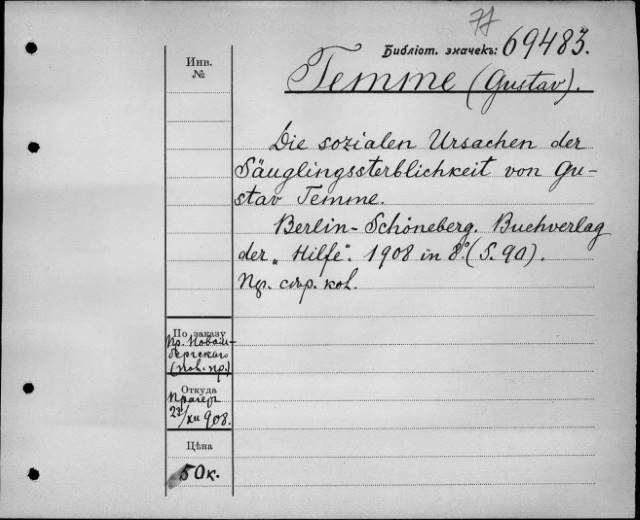 77
Библіот. значекъ: 69483.
Инв.
№
Temme (Gustav).
Die sozialen Ursachen der
Säuglingssterblichkeit von Gu-
stav Temme.
Berlin-Schöneberg. Buchverlag
der „Hilfe". 1908 in 8°. (S. 90).
По заказу
Пр. Новом-
бергскаго
Откуда
Прагеръ
22/XII 908.
Цѣна
50 к.